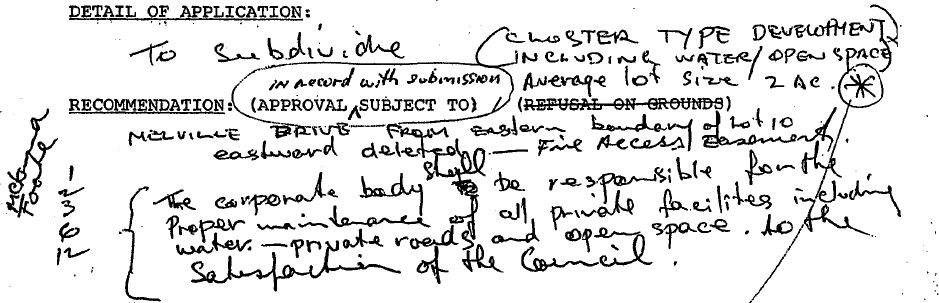 DETAIL OF APPLICATION:
To subdivide (CLUSTER TYPE DEVELOPMENT
INCLUDING WATER/OPEN SPACE)
in accord with submission
Average lot size 2 Ac. *
RECOMMENDATION: (APPROVAL SUBJECT TO) (REFUSAL ON GROUNDS)
MELVILLE DRIVE From Eastern boundary of Lot 10
eastward deleted — Fire Access/Easement.
The corporate body shall be responsible for the
Proper maintenance of all private facilites including
water — private roads and open space. to the
Satisfaction of the Council.
2
3
6
12